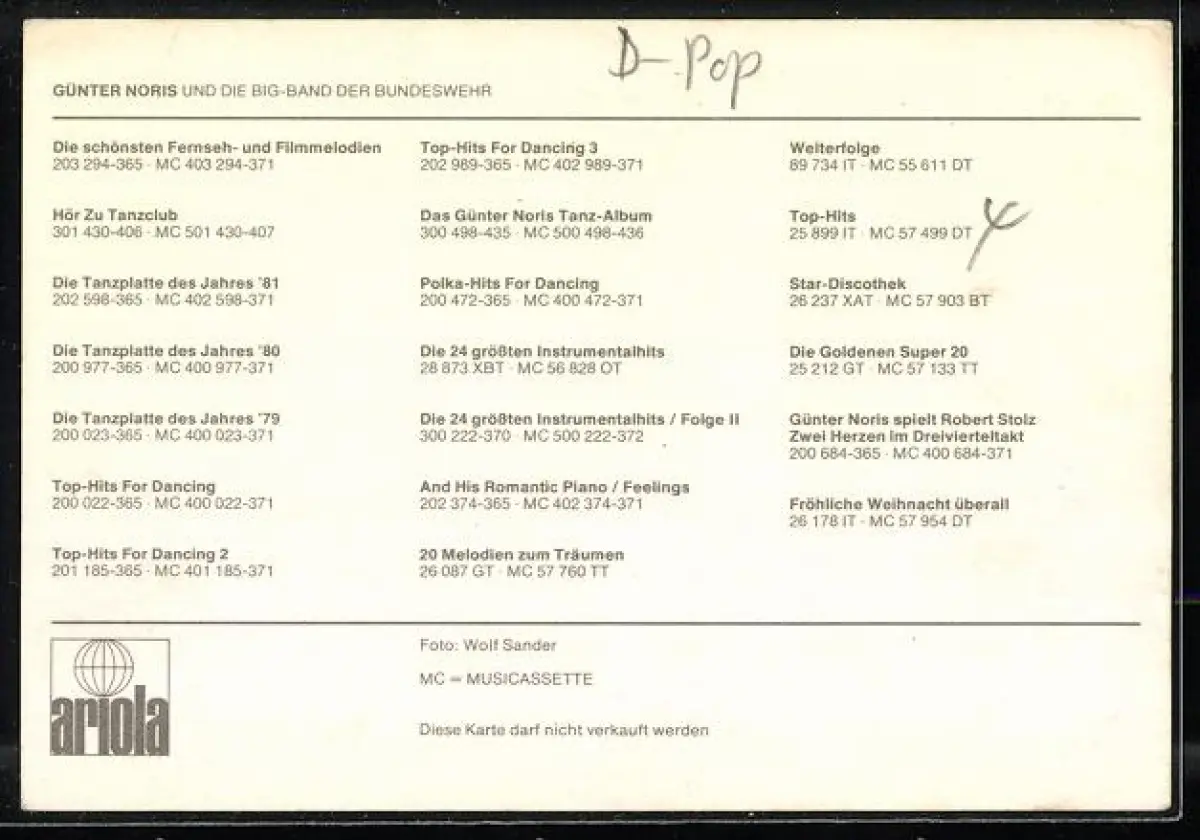 D-Pop
GÜNTER NORIS UND DIE BIG-BAND DER BUNDESWEHR
Die schönsten Fernseh- und Filmmelodien
203 294-365 · MC 403 294-371
Hör Zu Tanzclub
301 430-406 · MC 501 430-407
Die Tanzplatte des Jahres '81
202 598-365 · MC 402 598-371
Die Tanzplatte des Jahres '80
200 977-365 · MC 400 977-371
Die Tanzplatte des Jahres '79
200 023-365 · MC 400 023-371
Top-Hits For Dancing
200 022-365 · MC 400 022-371
Top-Hits For Dancing 2
201 185-365 · MC 401 185-371
Top-Hits For Dancing 3
202 989-365 · MC 402 989-371
Das Günter Noris Tanz-Album
300 498-435 · MC 500 498-436
Polka-Hits For Dancing
200 472-365 · MC 400 472-371
Die 24 größten Instrumentalhits
28 873 XBT · MC 56 828 OT
Die 24 größten Instrumentalhits / Folge II
300 222-370 · MC 500 222-372
And His Romantic Piano / Feelings
202 374-365 · MC 402 374-371
20 Melodien zum Träumen
26 087 GT · MC 57 760 TT
Welterfolge
89 734 IT · MC 55 611 DT
Top-Hits
25 899 IT · MC 57 499 DT
Star-Discothek
26 237 XAT · MC 57 903 BT
Die Goldenen Super 20
25 212 GT · MC 57 133 TT
Günter Noris spielt Robert Stolz
Zwei Herzen im Dreivierteltakt
200 684-365 · MC 400 684-371
Fröhliche Weihnacht überall
26 178 IT · MC 57 954 DT
ariola
Foto: Wolf Sander
MC = MUSICASSETTE
Diese Karte darf nicht verkauft werden